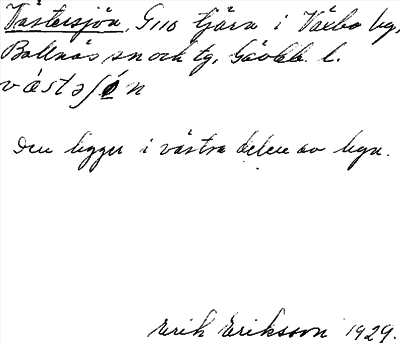 Västersjön, G110 tjärn i Växbo by,
Bollnäs sn och tg, Gävleb. l.
västəʃön
Den ligger i västra delen av byn.
Erik Eriksson 1929.